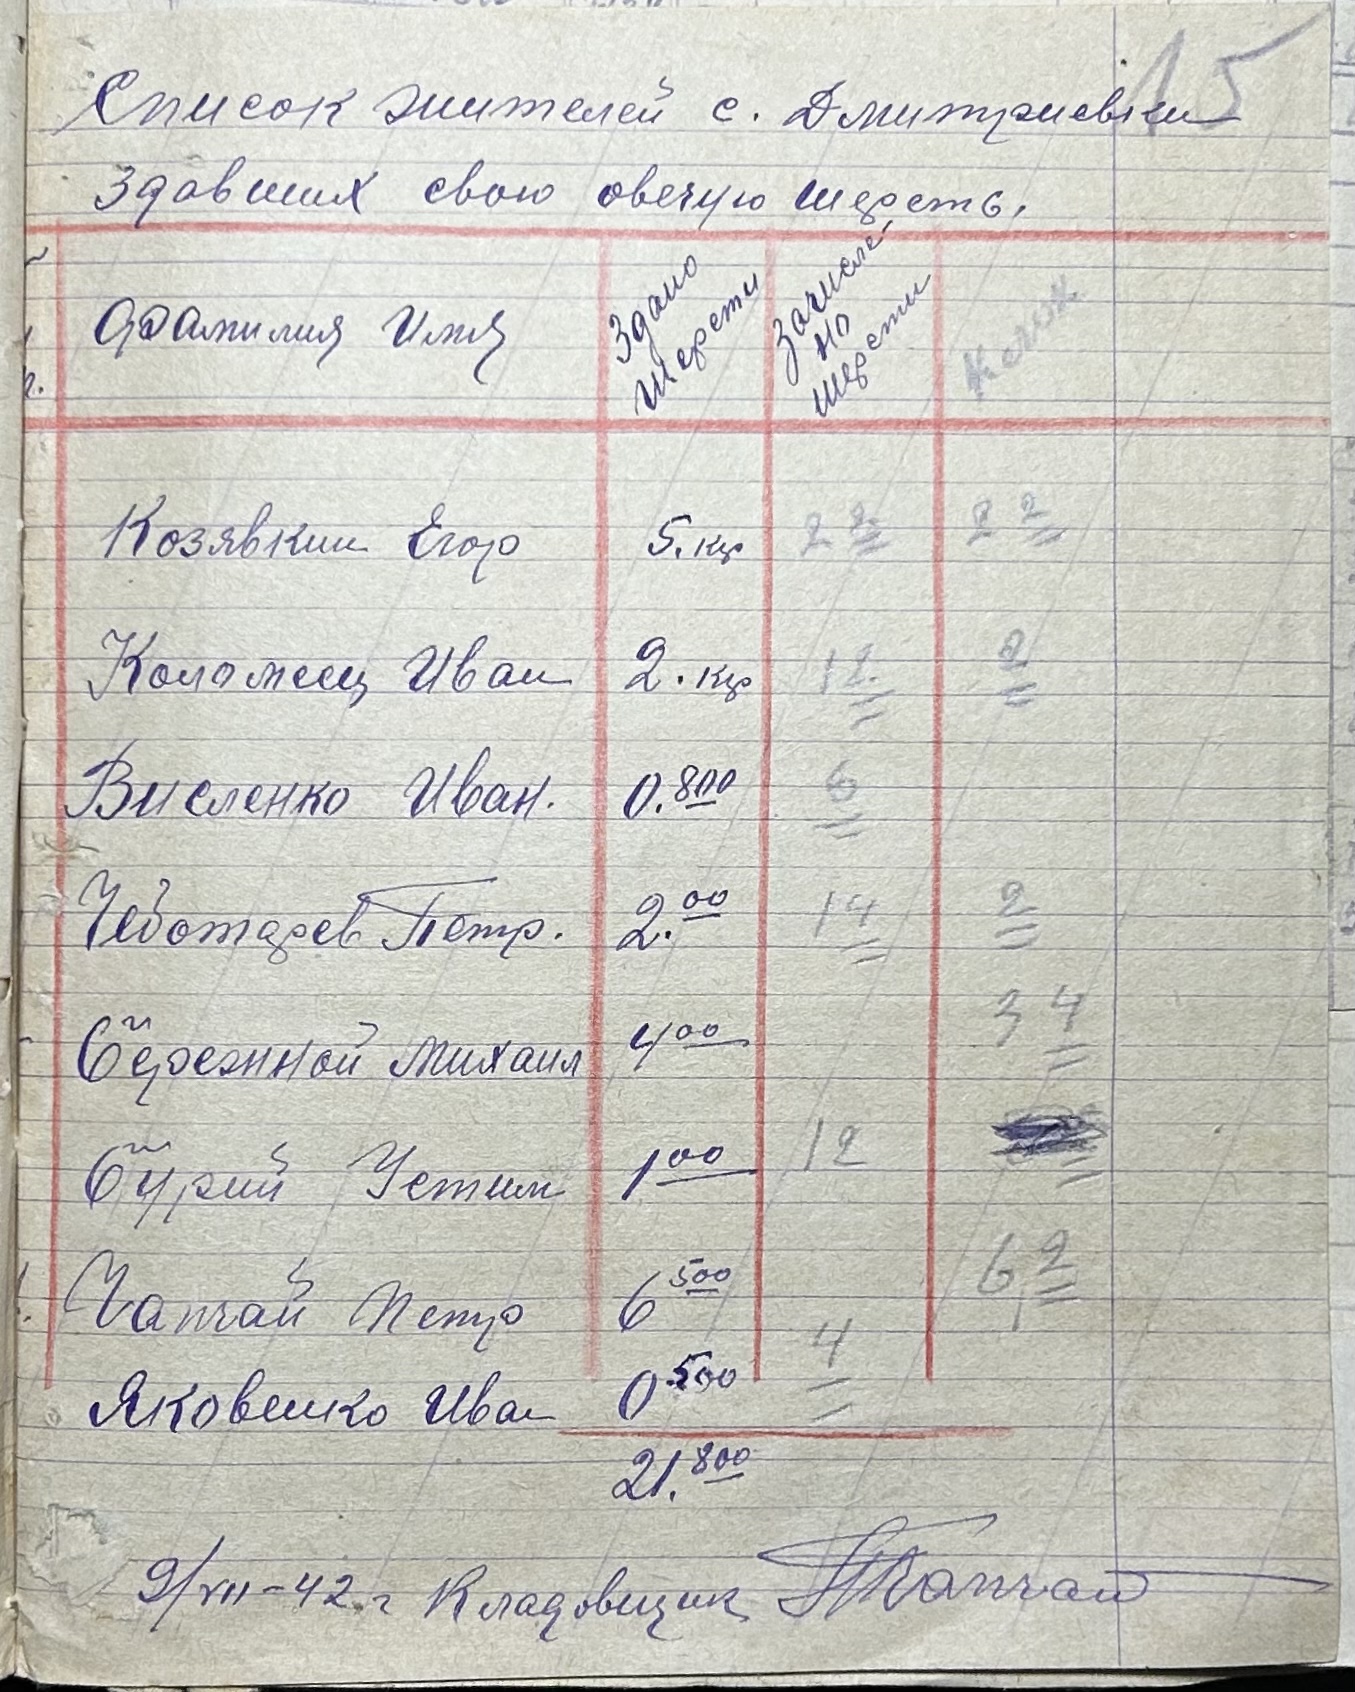 15
Список жителей с. Дмитриевки
Здавших свою овечую шерсть.
Фамилия Имя Здано шерсти Зачислено шерсти
Козявкин Егор 5. кгр 22 22
Коломеец Иван 2. кгр 12. 2
Висленко Иван. 0.800 6
Чеботарев Петр. 2.00 14 2
Бережной Михаил 4 00 34
Бурий Устим 1 00 12
Чапчай Петр 6 500 62
Яковенко Иван 0 500 4
21.800
9/VII-42 г Кладовщик